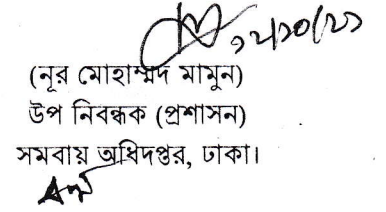 ১২/১০/২১
(নূর মোহাম্মদ মামুন)
উপ নিবন্ধক (প্রশাসন)
সমবায় অধিদপ্তর, ঢাকা।